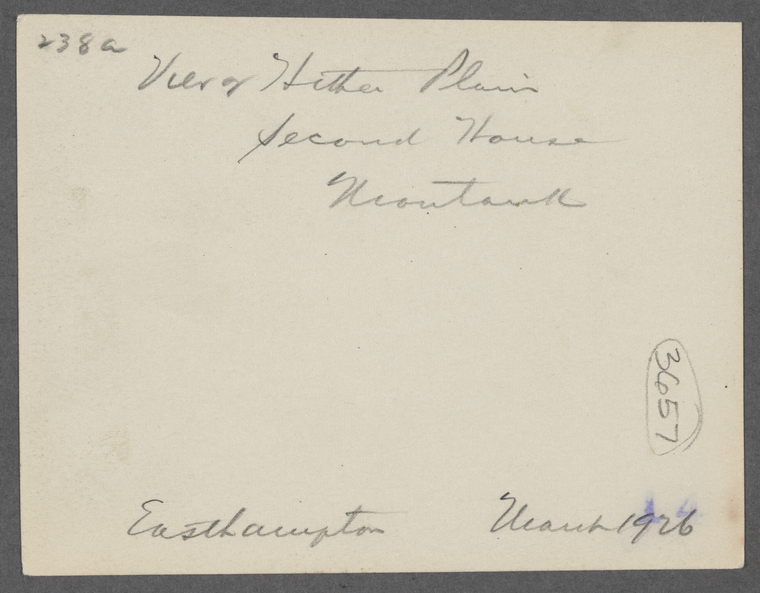 238a
View of Hither Plain
Second House
Montauk
3657
Easthampton March 1926